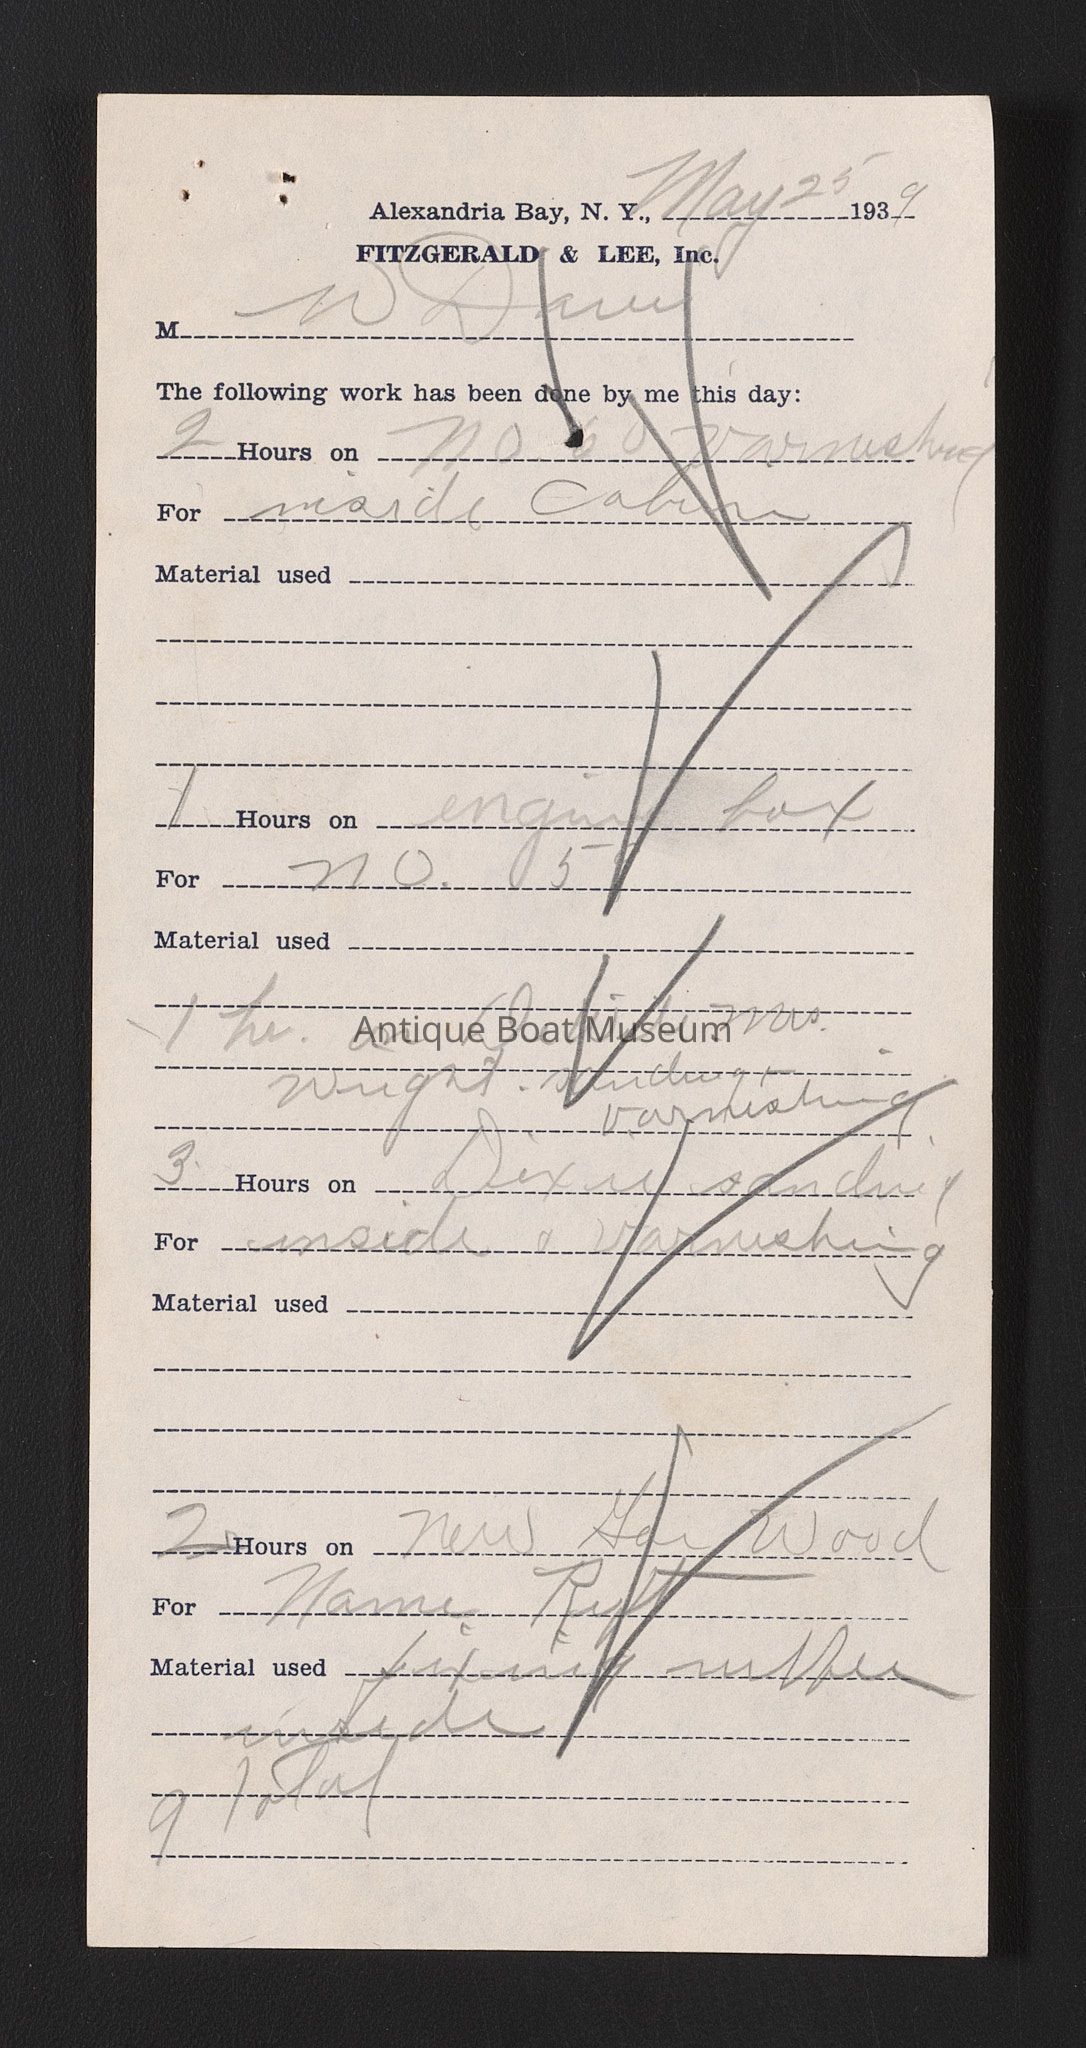 May 25 9
Alexandria Bay, N. Y., 193
FITZGERALD & LEE, Inc.
W Davis
M
The following work has been done by me this day:
2 Hours on No 60 varnished
For inside Cabin
Material used
1 Hours on engine box
For No. 5
Material used
1 hr. on Mrs.
Antique Boat Museum
Wright. sanding +
varnishing
3 Hours on Dixie sanding
For inside & varnishing
Material used
2 Hours on New Gar Wood
For Name
Material used fixing rubber
inside
9 Total